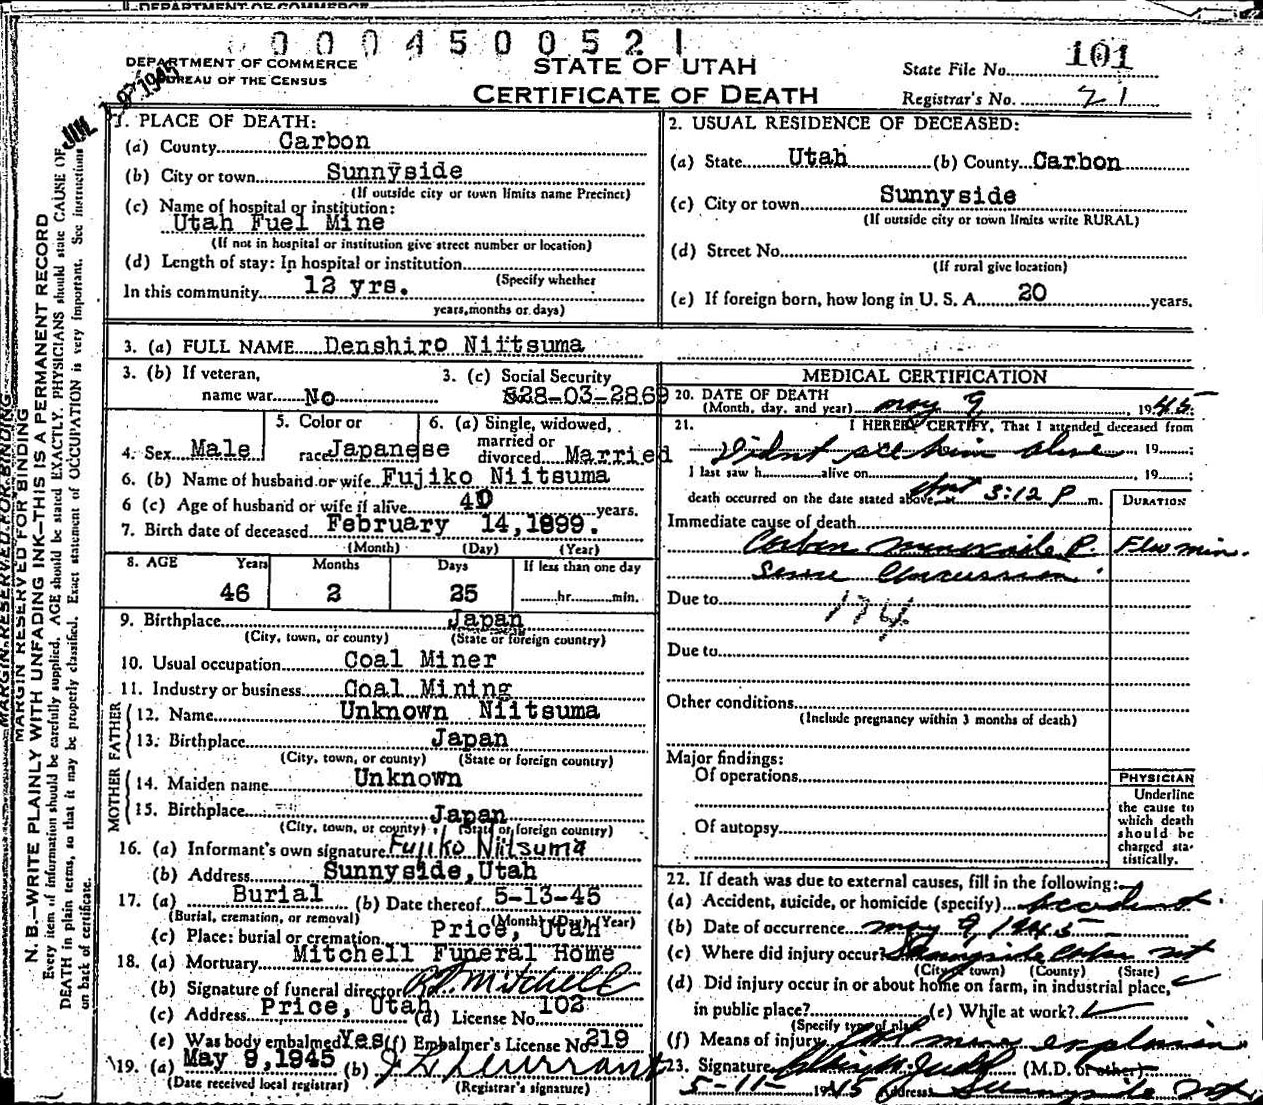 DEPARTMENT OF COMMERCE
0004500521
DEPARTMENT OF COMMERCE
BUREAU OF THE CENSUS
STATE OF UTAH
CERTIFICATE OF DEATH
State File No. 101
Registrar's No. 21
JUL 19 1945
MARGIN RESERVED FOR BINDING
MARGIN RESERVED FOR BINDING
N. B.—WRITE PLAINLY WITH UNFADING INK—THIS IS A PERMANENT RECORD
Every item of information should be carefully supplied. AGE should be stated EXACTLY. PHYSICIANS should state CAUSE OF
DEATH in plain terms, so that it may be properly classified. Exact statement of OCCUPATION is very important. See instructions
on back of certificate.
1. PLACE OF DEATH:
(a) County Carbon
(b) City or town Sunnyside
(If outside city or town limits name Precinct)
(c) Name of hospital or institution:
Utah Fuel Mine
(If not in hospital or institution give street number or location)
(d) Length of stay: In hospital or institution
(Specify whether
In this community 12 yrs.
years, months or days)
2. USUAL RESIDENCE OF DECEASED:
(a) State Utah (b) County Carbon
(c) City or town Sunnyside
(If outside city or town limits write RURAL)
(d) Street No.
(If rural give location)
(e) If foreign born, how long in U. S. A. 20 years.
3. (a) FULL NAME Denshiro Niitsuma
3. (b) If veteran, name war No
3. (c) Social Security 528-03-2869
4. Sex Male
5. Color or race Japanese
6. (a) Single, widowed, married or divorced Married
6. (b) Name of husband or wife Fujiko Niitsuma
6 (c) Age of husband or wife if alive 40 years.
7. Birth date of deceased February 14, 1899.
(Month) (Day) (Year)
8. AGE Years Months Days If less than one day
46 2 25 hr. min.
9. Birthplace Japan
(City, town, or county) (State or foreign country)
10. Usual occupation Coal Miner
11. Industry or business Coal Mining
FATHER
12. Name Unknown Niitsuma
13. Birthplace Japan
(City, town, or county) (State or foreign country)
MOTHER
14. Maiden name Unknown
15. Birthplace Japan
(City, town, or county) (State or foreign country)
16. (a) Informant's own signature Fujiko Niitsuma
(b) Address Sunnyside, Utah
17. (a) Burial (b) Date thereof 5-13-45
(Burial, cremation, or removal) (Month) (Day) (Year)
(c) Place: burial or cremation Price, Utah
18. (a) Mortuary Mitchell Funeral Home
(b) Signature of funeral director Mitchell
(c) Address Price, Utah (d) License No. 102
(e) Was body embalmed Yes (f) Embalmer's License No. 219
19. (a) May 9, 1945 (b)
(Date received local registrar) (Registrar's signature)
MEDICAL CERTIFICATION
20. DATE OF DEATH
(Month, day, and year) May 9, 1945.
21. I HEREBY CERTIFY, That I attended deceased from
Didnt see him alive 19
I last saw h alive on 19
death occurred on the date stated above, at 3:12 P m.
DURATION
Immediate cause of death
Carbon monoxide P. Few min.
Severe Concussion
Due to 174
Due to
Other conditions
(Include pregnancy within 3 months of death)
Major findings:
Of operations
Of autopsy
PHYSICIAN
Underline
the cause to
which death
should be
charged sta-
tistically.
22. If death was due to external causes, fill in the following:
(a) Accident, suicide, or homicide (specify) Accident.
(b) Date of occurrence May 9, 1945
(c) Where did injury occur? Sunnyside Carbon Ut
(City or town) (County) (State)
(d) Did injury occur in or about home on farm, in industrial place,
in public place? (e) While at work?
(Specify type of place)
(f) Means of injury mine explosion
23. Signature (M.D. or other)
5-11- 1945 Address Sunnyside Ut.